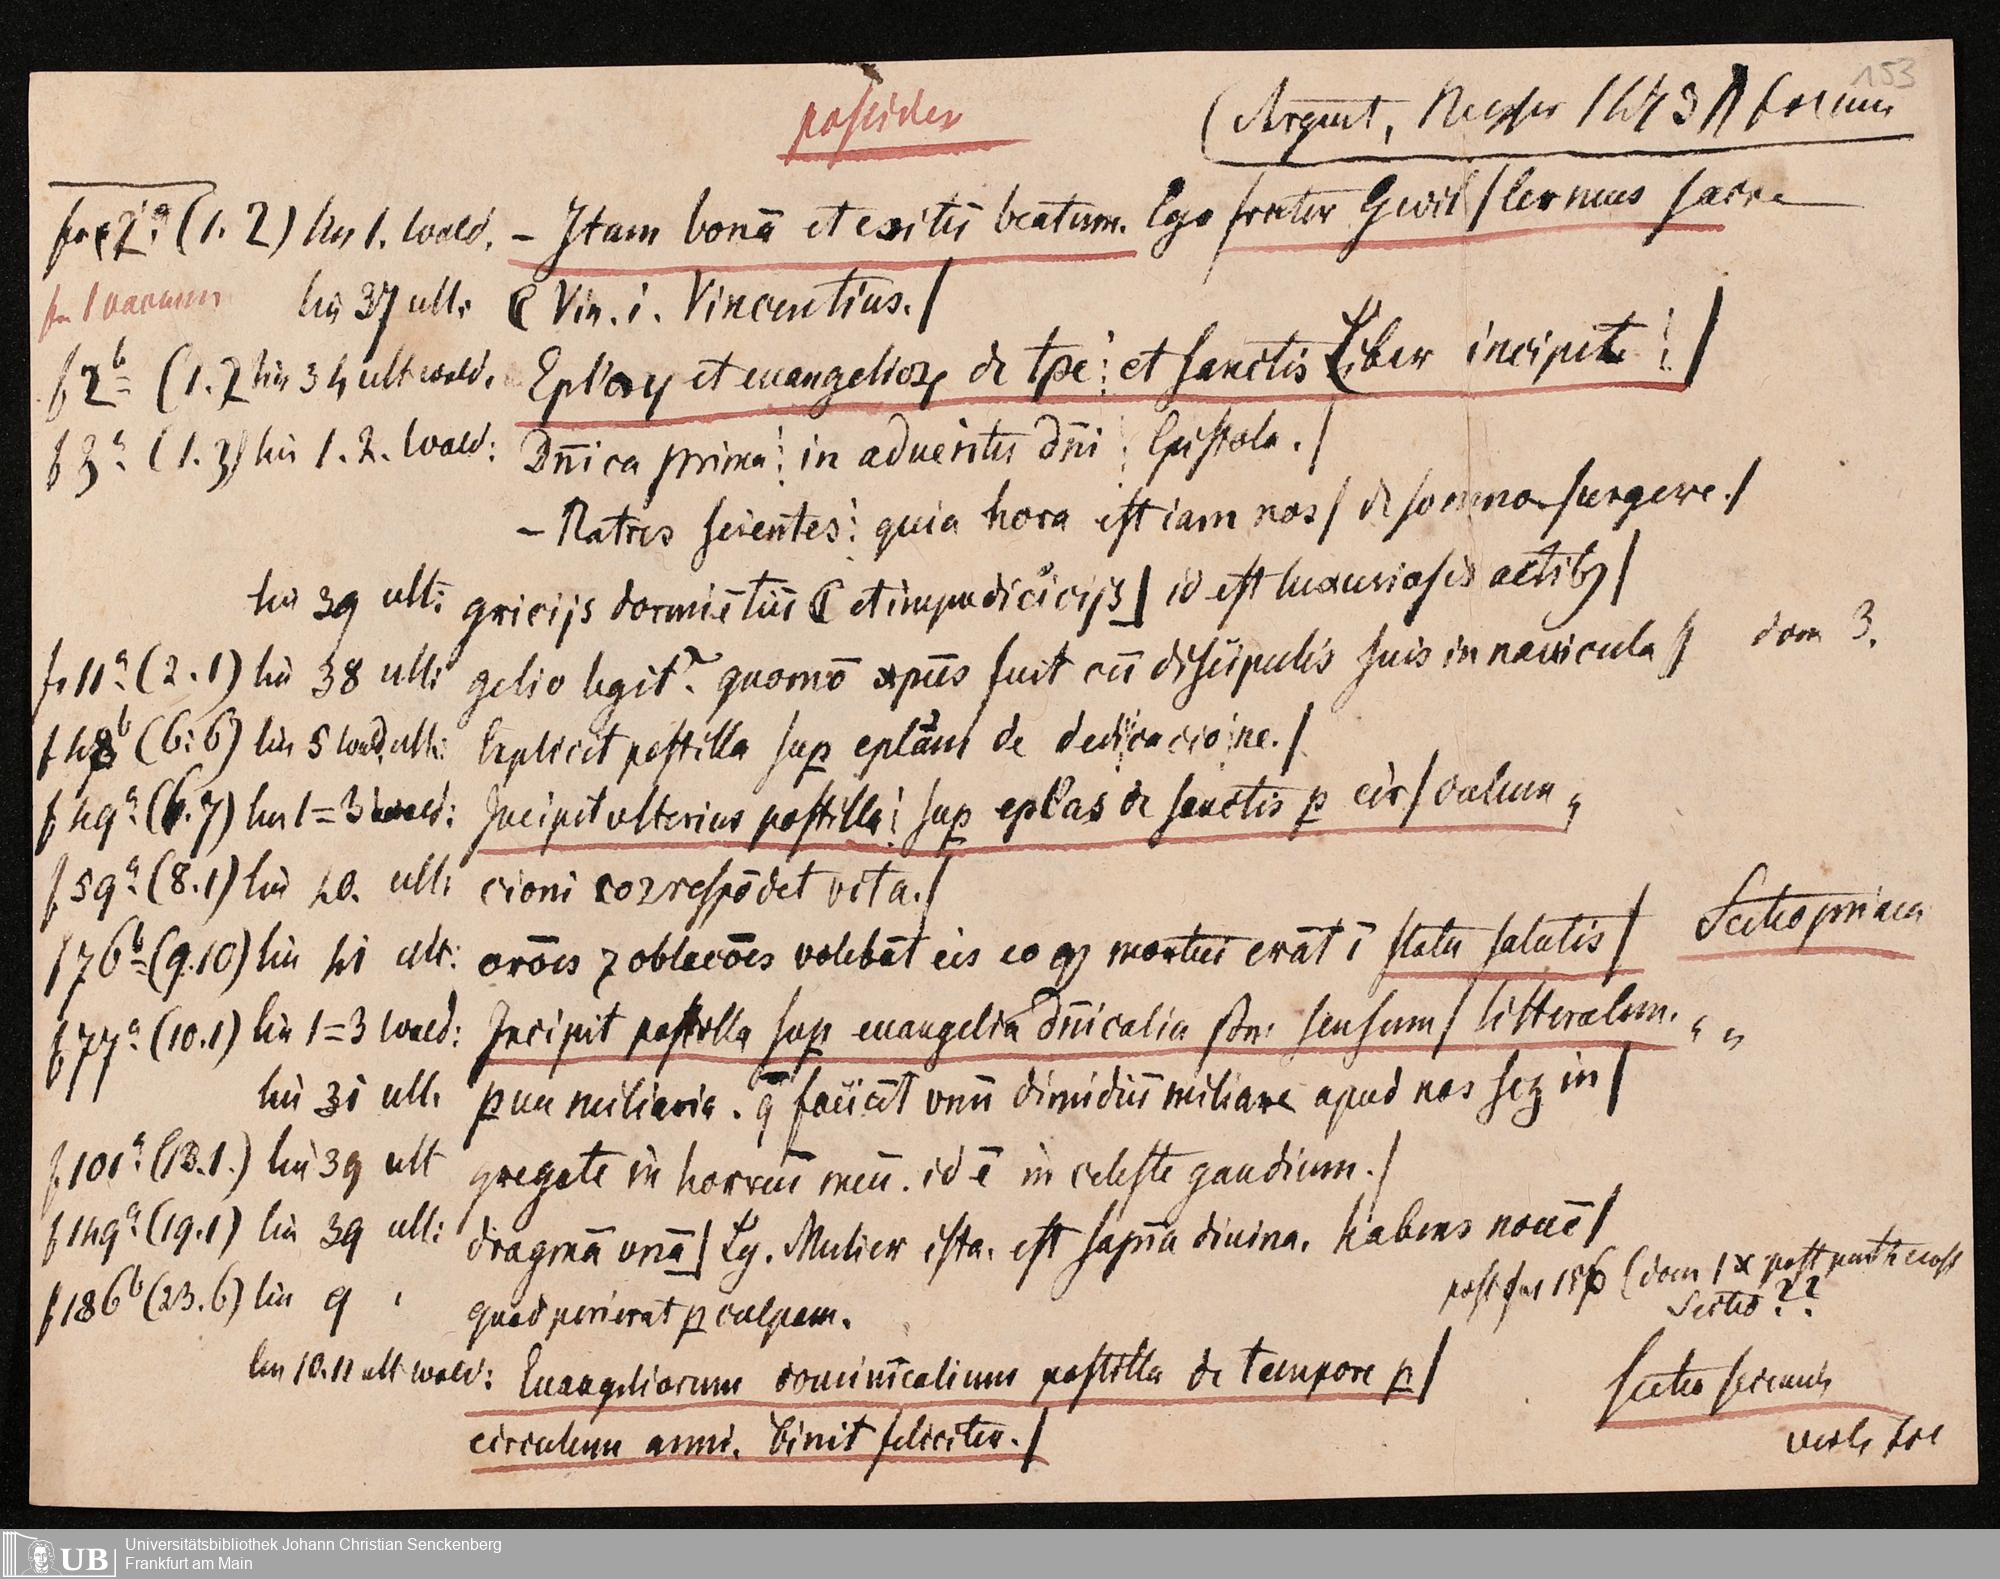 153
possidex
(Argent, 1473) fol
fo 2ᵃ (1.2) lin 1. wald. – Itam bonā et exitū beatum. Ego frater Gwil/lermus sacre
fo 1 vacuum lin 37 ult: ₵ Vin. i. Vincentius./
f 2ᵇ (1.2 lin 34 ult wald. et euangelioꝝ de tpe¦ et sanctis Liber incipit¦/
f 3ᵃ (1.3) lin 1.2. wald: Dn̄ica prima¦ in aduentu dn̄i ¦ Epistola./
– Ratres scientes¦ quia hora est iam nos/ de somno surgere./
lin 39 ult: gricijs dormiētiū ₵ et impudicicijs] id est luxuriosis actibꝫ/
f. 11ᵃ (2.1) lin 38 ult: gelio legit~. quomō xpūs fuit cū discipulis suis in nauicula // dom 3.
f 48ᵇ (6:6) lin 5 wald ult: Explicit postilla suꝑ eplām de dedicacio¦ne./
f 49ᵃ (6.7) lin 1=3 wald: Incipit vlterius postilla¦ suꝑ eplas de sanctis ꝑ cir/culum
f 59ᵃ (8.1) lin 40. ult: cioni correspōdet vita./
f 76ᵇ (9.10) lin 41 ult: orōes ⁊ oblacōes volebāt eis eo ꝙ mortui erāt ī statu salutis/ Sectio primea
f 77ᵃ (10.1) lin 1=3 wald: Incipit postilla suꝑ euangelia dn̄icalia sm: sensum/ litteralem. „ „
lin 31 ult. ꝑua miliaria. q̄ faciūt vnū dimidiū miliare apud nos scꝫ in/
f. 101ᵃ (13.1.) lin 39 ult gregate in horreū meū. id ē in celeste gaudium./
f 149ᵃ (19.1) lin 39 ult: dragmā vnā] Ly. Mulier ista. est sapīa diuina. habens nouē/
f 186ᵇ (23.6) lin 9 quod perierat ꝑ culpam.
post fo 156 (dom 1x post penthecost
Sectio ??
lin 10.11 ult wald: Euangeliorum dominicalium postilla de tempore ꝑ/
circulum anni. Finit feliciter./
Sectio secunda
verte fol
UB Universitätsbibliothek Johann Christian Senckenberg
Frankfurt am Main